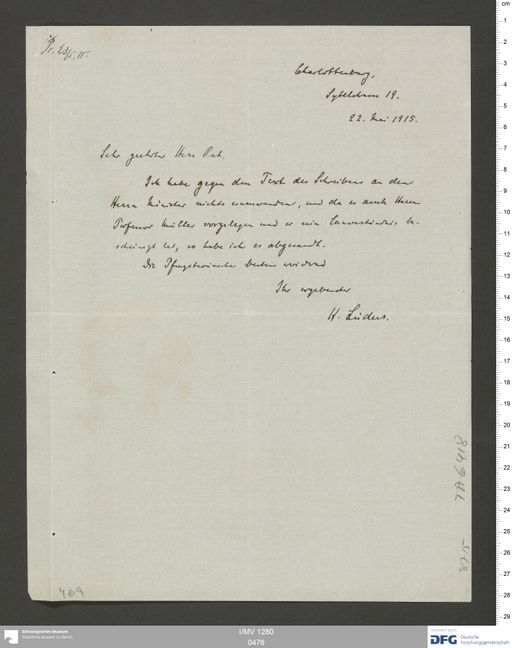 Charlottenburg,
Sybelstrasse 19.
22. Mai 1915.
Sehr geehrter Herr Rat,
Ich habe gegen den Text des Schreibens an den
Herrn Minister nichts einzuwenden, und da es auch Herrn
Professor Müller vorgelegen und er sein Einverständnis be-
scheinigt hat, so habe ich es abgesandt.
Die Pfingstwünsche bestens erwidernd
Ihr ergebenster
H. Lüders.
469
I/MV 1280
0476
Ethnologisches Museum
Staatliche Museen zu Berlin
DFG Deutsche
Forschungsgemeinschaft
cm
1
2
3
4
5
6
7
8
9
10
11
12
13
14
15
16
17
18
19
20
21
22
23
24
25
26
27
28
29